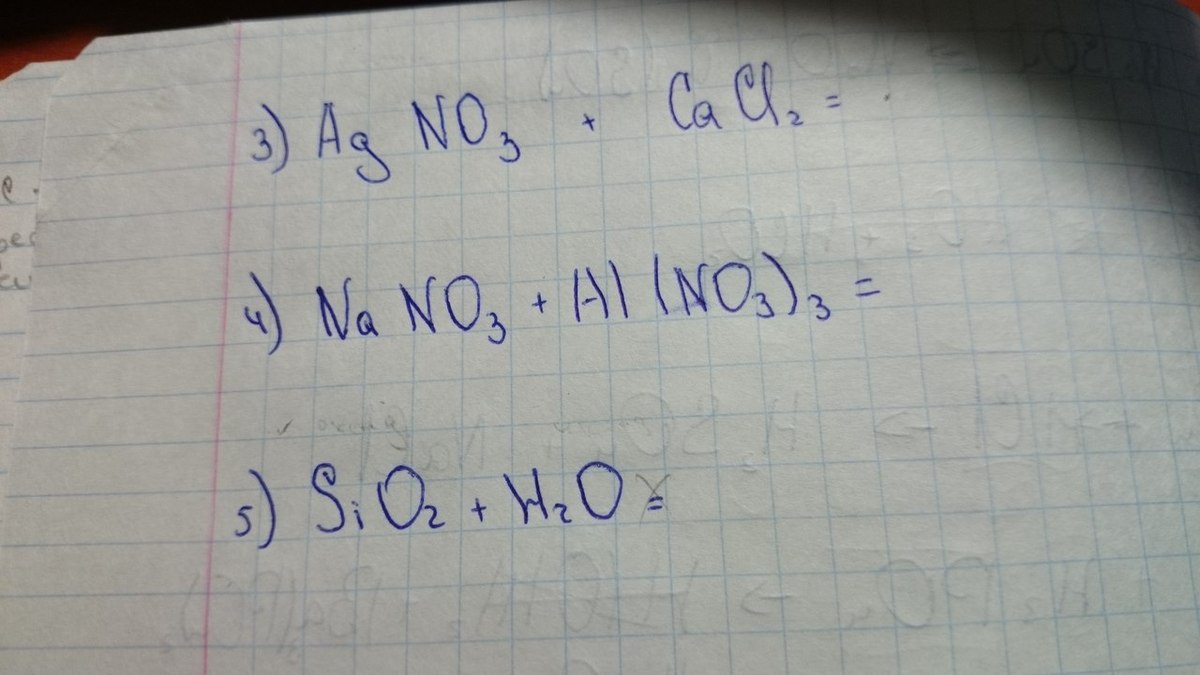 3) AgNO₃ + CaCl₂ =
4) NaNO₃ + Al(NO₃)₃ =
оксид
5) SiO₂ + H₂O =